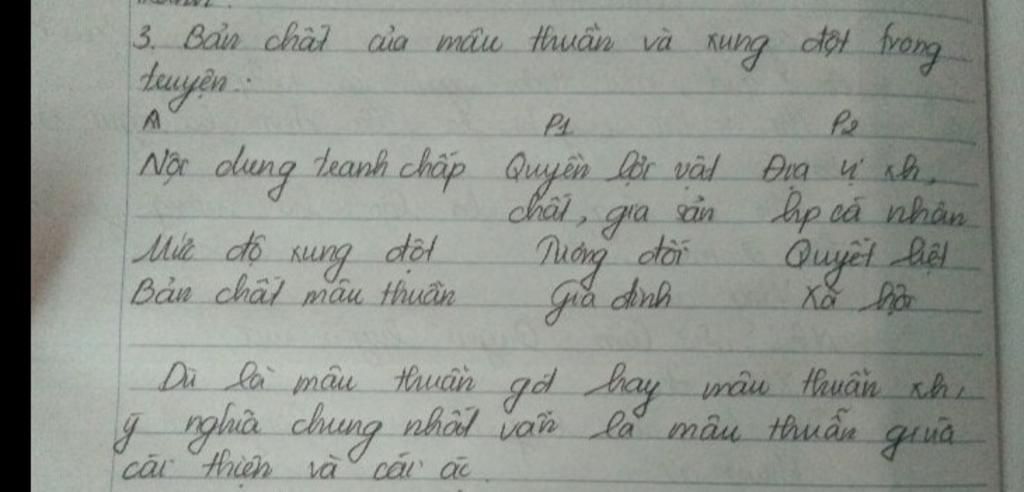 3. Bản chất của mâu thuẫn và xung đột trong
truyện:
A P1 P2
Nội dung tranh chấp Quyền lợi vật Địa vị xh,
chất, gia sản hp cá nhân
Mức độ xung đột Tương đối Quyết liệt
Bản chất mâu thuẫn Gia đình Xã hội
Dù là mâu thuẫn gđ hay mâu thuẫn xh,
ý nghĩa chung nhất vẫn là mâu thuẫn giữa
cái thiện và cái ác.